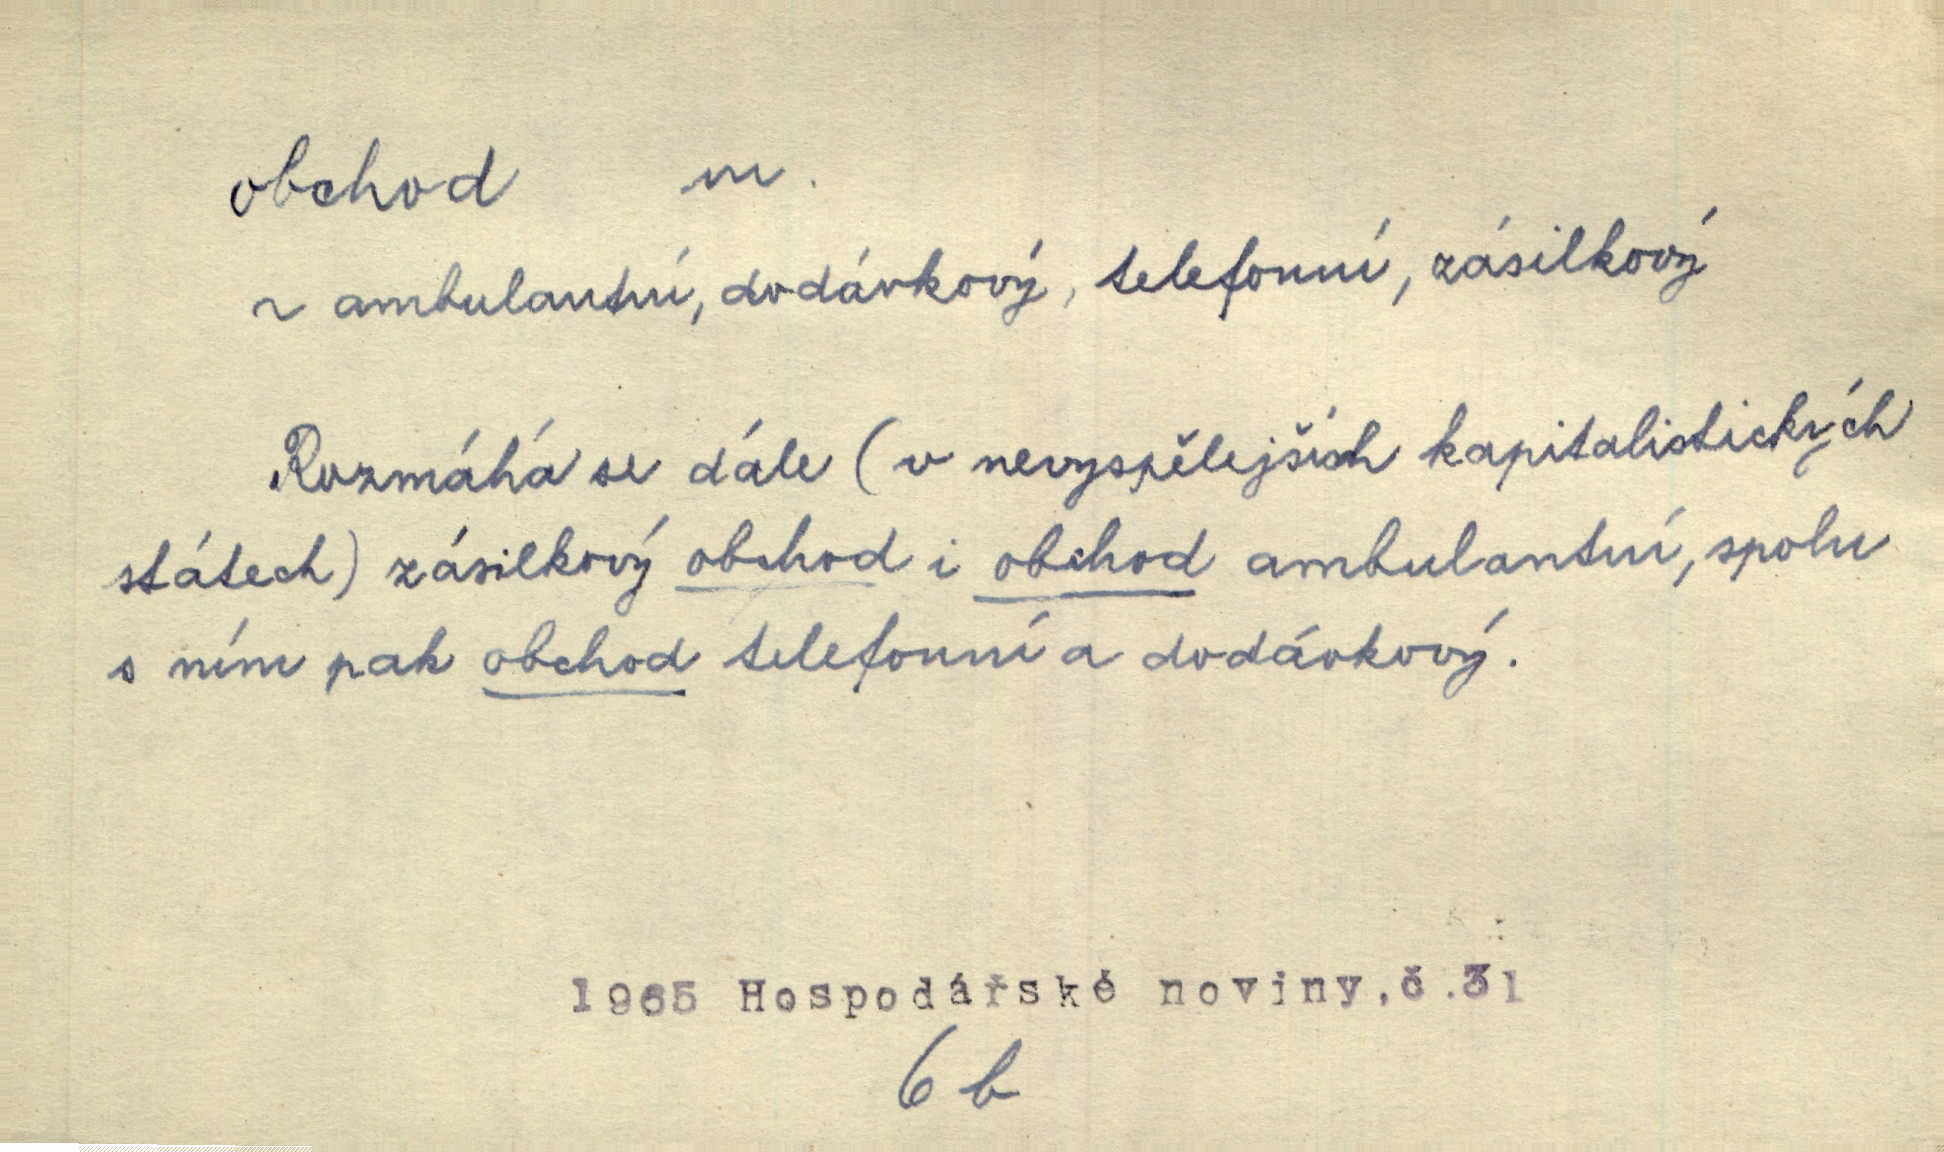 obchod m.
~ ambulantní, dodávkový, telefonní, zásilkový
Rozmáhá se dále (v nevyspělejších kapitalistických
státech) zásilkový obchod i obchod ambulantní, spolu
s ním pak obchod telefonní a dodávkový.
1965 Hospodářské noviny,č.31
6 b